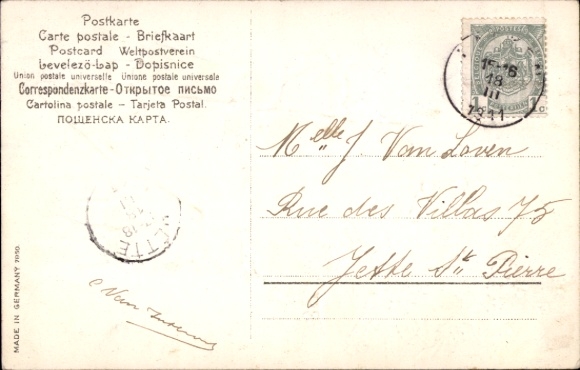 Postkarte
Carte postale - Briefkaart
Postcard Weltpostverein
Levelező-Lap - Dopisnice
Union postale universelle Unione postale universale
Correspondenzkarte - Открытое письмо
Cartolina postale - Tarjeta Postal.
ПОЩЕНСКА КАРТА.
15-16
18
III
1911
1 1c
Melle J. Van Loven
Rue des Villas 75
Jette St. Pierre
JETTE
18
C Van
MADE IN GERMANY 7090